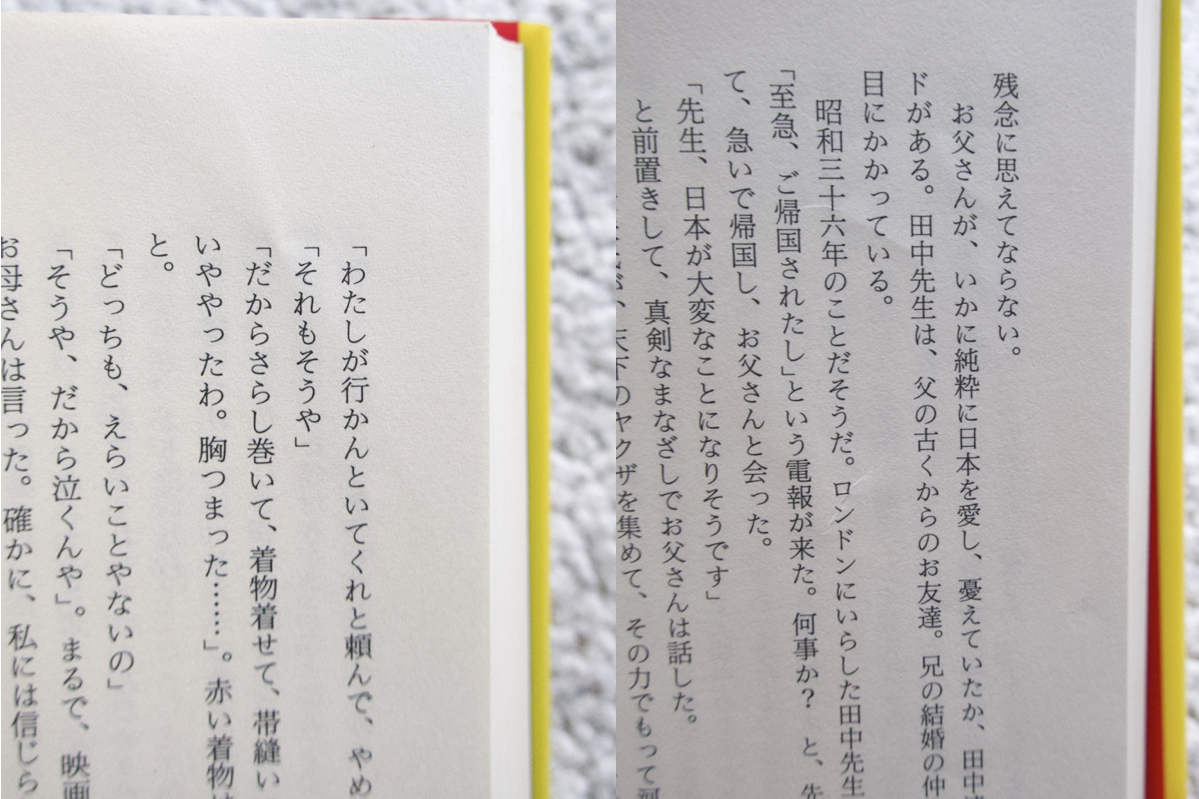 「わたしが行かんといてくれと頼んで、やめ
「それもそうや」
「だからさらし巻いて、着物着せて、帯縫い
いややったわ。胸つまった……」。赤い着物
と。
「どっちも、えらいことやないの」
「そうや、だから泣くんや」。まるで、映画
お母さんは言った。確かに、私には信じら
残念に思えてならない。
お父さんが、いかに純粋に日本を愛し、憂えていたか、田中
ドがある。田中先生は、父の古くからのお友達。兄の結婚の仲
目にかかっている。
昭和三十六年のことだそうだ。ロンドンにいらした田中先生
「至急、ご帰国されたし」という電報が来た。何事か？　と、先
て、急いで帰国し、お父さんと会った。
「先生、日本が大変なことになりそうです」
と前置きして、真剣なまなざしでお父さんは話した。
が、天下のヤクザを集めて、その力でもって